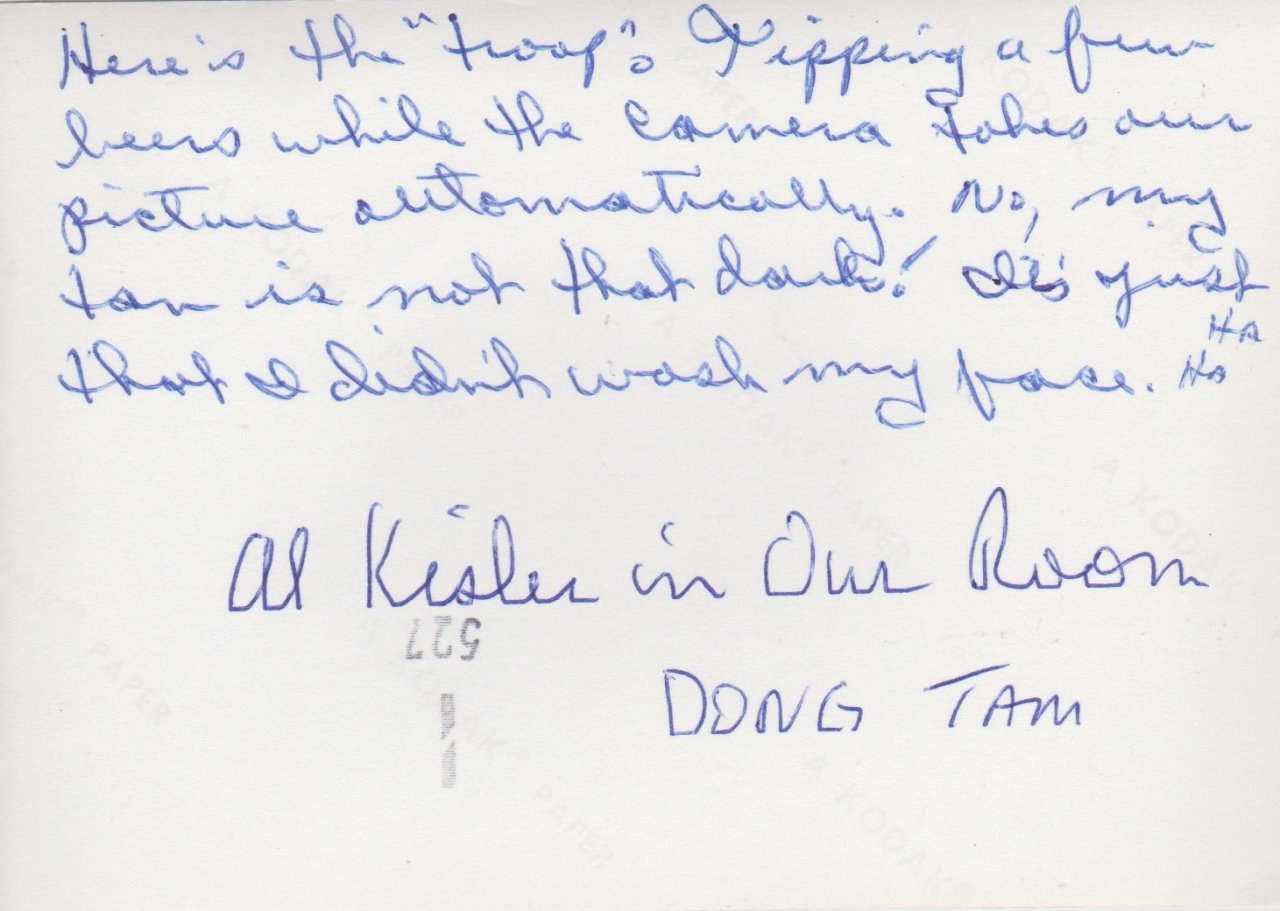 Here's the "troop". Nipping a few
beers while the camera takes our
picture automatically. No, my
tan is not that dark! It's just
that I didn't wash my face. HA
HA
Al Kisler in Our Room
527
DONG TAM
A KODAK PAPER